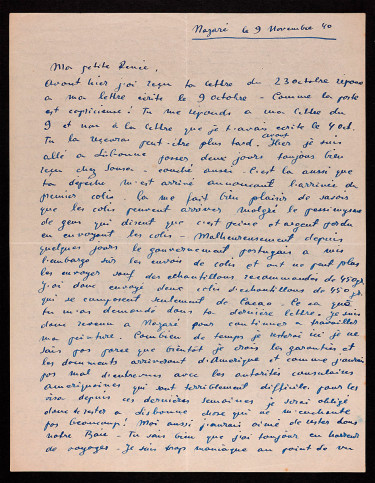 Nazaré le 9 Novembre 40
Ma petite Renée,
Avant hier j'ai reçu ta lettre du 23 octobre réponse
a ma lettre écrite le 9 octobre - Comme la poste
est capricieuse! Tu me reponds a ma lettre du
9 et non à la lettre que je t'avais écrite le 4 Oct.
Tu la recevras peut-être plus tard. Avant Hier je suis
allé a Lisbonne passer deux jours toujours bien
reçu chez Sousa - couché aussi. C'est là aussi que
ta depeche m'est arrivé annoncant l'arrivée du
premier colis. Ça me fait bien plaisir de savoir
que les colis peuvent arriver malgré le pessimisme
de gens qui disent que c'est peine et argent perdu
en envoyant les colis - Malheureusement depuis
quelques jours le gouvernement portugais a mis
l'embargo sur les envois de colis et on ne peut plus
les envoyer sauf des échantillons recommandés de 450gr.
J'ai donc envoyé deux colis d'echantillons de 450 gr.
qui se composent seulement de Cacao - Ce sa que
tu m'as demandé dans ta dernière lettre. Je suis
donc revenu a Nazaré pour continuer a travailler
ma peinture. Combien de temps je resterai ici je ne
sais pas parce que bientôt je crois les garanties et
les documents arriveront d'Amerique et comme j'aurai
pas mal d'entrevues avec les autorités consulaires
ameriquaines qui sont terriblement difficile pour les
visa depuis ces dernières semaines je serai obligé
donc de rester a Lisbonne chose qui ne m'enchante
pas beaucoup! Moi aussi j'aurais aimé de rester dans
notre Baie - Tu sais bien que j'ai toujours eu horreur
de voyages - Je suis trop maniaque au point de vue